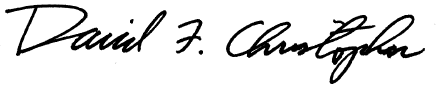 David F. Christopher